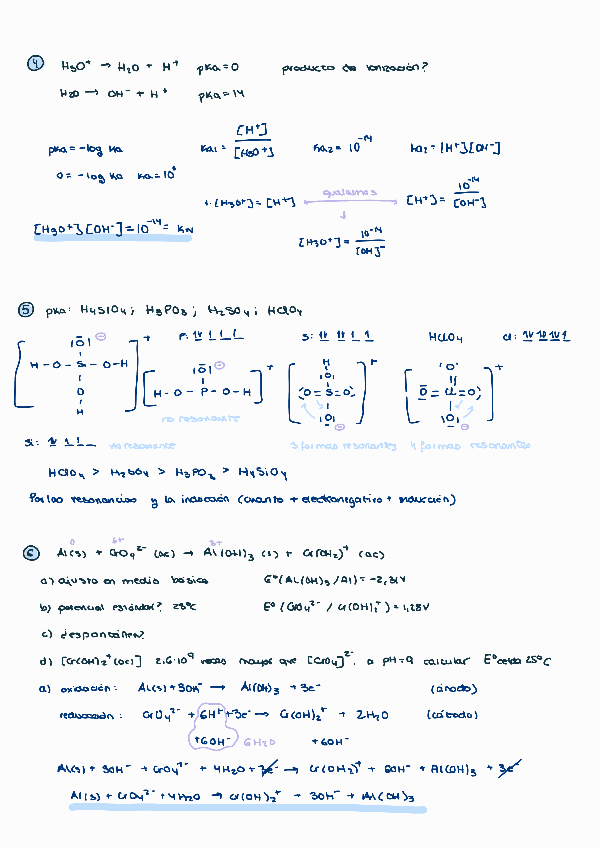 4 H3O+ → H2O + H+ pKa=0 producto de ionización?
H2O → OH- + H+ pKa=14
pKa=-log Ka Ka1= [H+]/[H3O+] Ka2= 10^-14 Ka2=[H+][OH-]
0=-log Ka Ka=10^0
[H3O+]=[H+] igualamos [H+]= 10^-14/[OH-]
[H3O+][OH-]=10^-14= Kw
[H3O+]= 10^-14/[OH]-
5 pKa: H4SiO4; H3PO3; H2SO4; HClO4
P: 1↓ 1 1 1 S: 1↓ 1↓ 1 1 HClO4 Cl: 1↓ 1↓ 1↓ 1
|O| - +
H-O-Si-O-H
O
H
|O| - +
H-O-P-O-H
no resonante
H +
|O|
(O=S=O)
|O| -
3 formas resonantes
"O" +
O=Cl=O)
|O| -
4 formas resonantes
Si: 1↓ 1 1 no resonante
HClO4 > H2SO4 > H3PO3 > H4SiO4
Por las resonancias y la inducción (cuanto + electronegativo + inducción)
0 6+ 3+
6 Al(s) + CrO4^2- (ac) → Al(OH)3 (s) + Cr(OH2)+ (ac)
a) ajusta en medio básico E°(Al(OH)3/Al)=-2,31V
b) potencial estándar? 25°C E°(CrO4^2-/Cr(OH)2+)=1,28V
c) ¿espontánea?
d) [Cr(OH)2+(ac)] 2,6·10^9 veces mayor que [CrO4]^2-, a pH=9 calcular E°celda 25°C
a) oxidación: Al(s)+3OH- → Al(OH)3 +3e- (ánodo)
reducción: CrO4^2- +6H+ +3e- → Cr(OH)2+ + 2H2O (cátodo)
+6OH- 6H2O +6OH-
Al(s)+3OH- + CrO4^2- +4H2O +3e- → Cr(OH2)+ + 6OH- + Al(OH)3 + 3e-
Al(s)+CrO4^2- +4H2O → Cr(OH)2+ + 3OH- + Al(OH)3